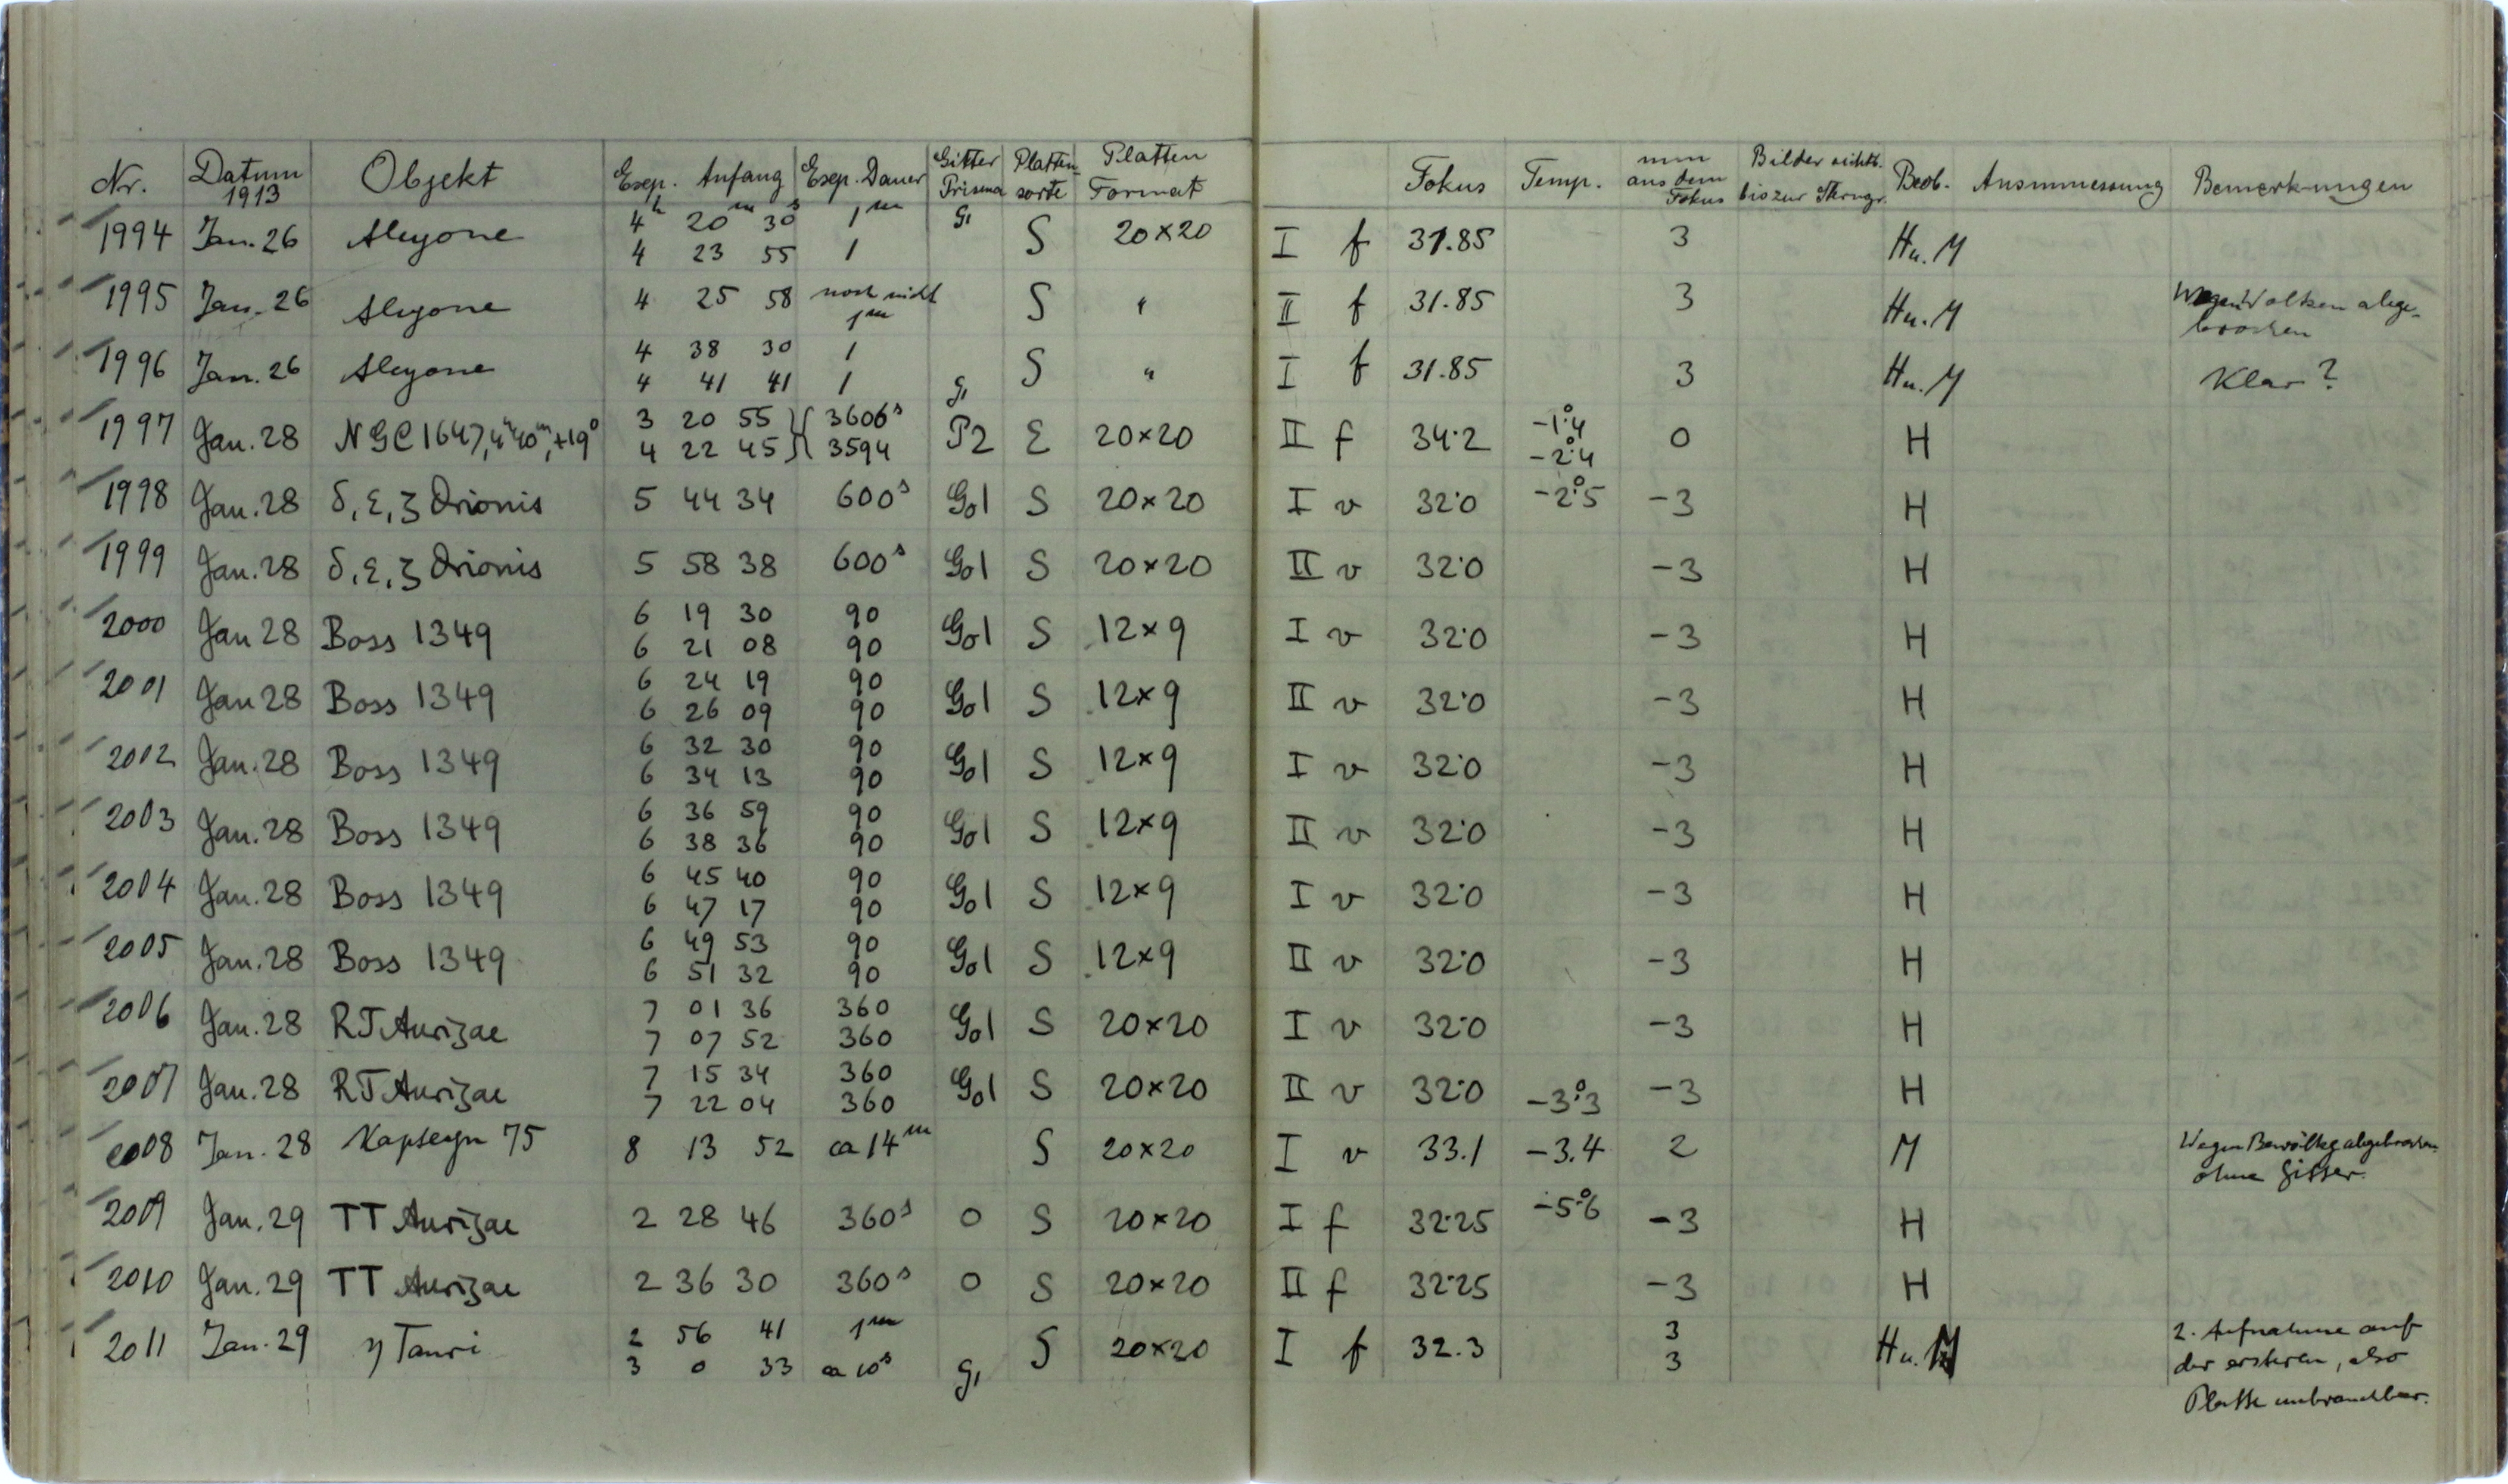 Nr. Datum 1913 Objekt Exp. Anfang Exp. Dauer Gitter Prisma Platten-sorte Platten Format Fokus Temp. mm aus dem Fokus Bilder sichtb. bis zur Beob. Ausmessung Bemerkungen
1994 Jan. 26 Alcyone 4h 20m 30s 1m G1 S 20×20 I f 31.85 3 H u. M
4 23 55 1
1995 Jan. 26 Alcyone 4 25 58 noch nicht 1m S " II f 31.85 3 H u. M Wegen Wolken abge-
brochen
1996 Jan. 26 Alcyone 4 38 30 1 S " I f 31.85 3 H u. M Klar?
4 41 41 1 G1
1997 Jan. 28 NGC 1647, 4h40m, +19° 3 20 55 3606s P2 E 20×20 II f 34.2 -1°.4 0 H
4 22 45 3594 -2°.4
1998 Jan. 28 δ, ε, ζ Orionis 5 44 34 600s G01 S 20×20 I v 32.0 -2°.5 -3 H
1999 Jan. 28 δ, ε, ζ Orionis 5 58 38 600s G01 S 20×20 II v 32.0 -3 H
2000 Jan 28 Boss 1349 6 19 30 90 G01 S 12×9 I v 32.0 -3 H
6 21 08 90
2001 Jan 28 Boss 1349 6 24 19 90 G01 S 12×9 II v 32.0 -3 H
6 26 09 90
2002 Jan. 28 Boss 1349 6 32 30 90 G01 S 12×9 I v 32.0 -3 H
6 34 13 90
2003 Jan. 28 Boss 1349 6 36 59 90 G01 S 12×9 II v 32.0 -3 H
6 38 36 90
2004 Jan. 28 Boss 1349 6 45 40 90 G01 S 12×9 I v 32.0 -3 H
6 47 17 90
2005 Jan. 28 Boss 1349 6 49 53 90 G01 S 12×9 II v 32.0 -3 H
6 51 32 90
2006 Jan. 28 RT Aurigae 7 01 36 360 G01 S 20×20 I v 32.0 -3 H
7 07 52 360
2007 Jan. 28 RT Aurigae 7 15 34 360 G01 S 20×20 II v 32.0 -3°.3 -3 H
7 22 04 360
2008 Jan. 28 Kapteyn 75 8 13 52 ca 14m S 20×20 I v 33.1 -3.4 2 M Wegen Bewölkg abgebrochen
ohne Gitter.
2009 Jan. 29 TT Aurigae 2 28 46 360s 0 S 20×20 I f 32.25 -5°.6 -3 H
2010 Jan. 29 TT Aurigae 2 36 30 360s 0 S 20×20 II f 32.25 -3 H
2011 Jan. 29 η Tauri 2 56 41 1m S 20×20 I f 32.3 3 H u. M 2. Aufnahme auf
3 0 33 ca 10s G1 3 der ersteren, also
Platte unbrauchbar.